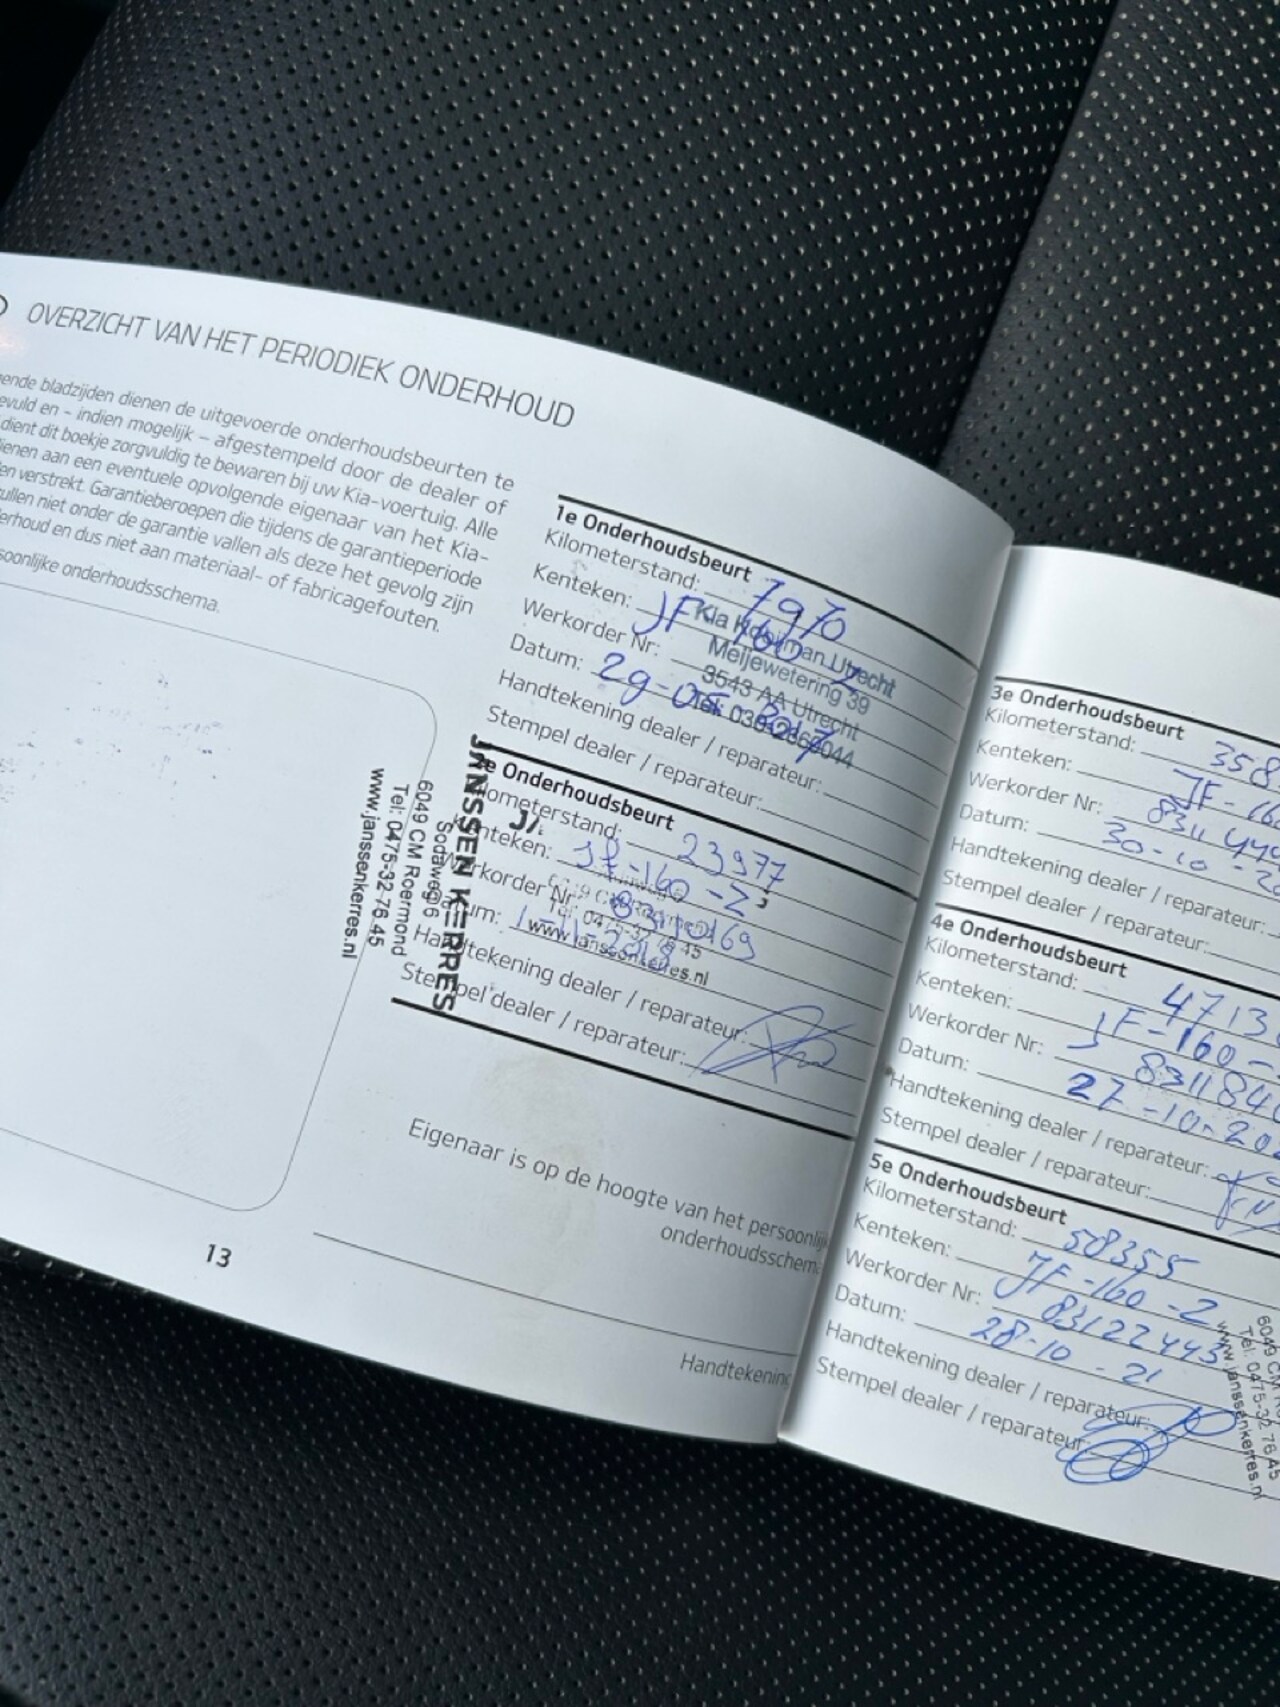 OVERZICHT VAN HET PERIODIEK ONDERHOUD
bladzijden dienen de uitgevoerde onderhoudsbeurten te
en – indien mogelijk – afgestempeld door de dealer of
dient dit boekje zorgvuldig te bewaren bij uw Kia-voertuig. Alle
aan een eventuele opvolgende eigenaar van het Kia-
verstrekt. Garantieberoepen die tijdens de garantieperiode
niet onder de garantie vallen als deze het gevolg zijn
en dus niet aan materiaal- of fabricagefouten.
onderhoudsschema.
1e Onderhoudsbeurt
Kilometerstand: 7970
Kenteken: JF-160-Z
Werkorder Nr:
Datum: 29-05-2017
Handtekening dealer / reparateur:
Stempel dealer / reparateur:
Kia Kooijman Utrecht
Meijewetering 39
3543 AA Utrecht
2e Onderhoudsbeurt
Kilometerstand: 23977
Kenteken: JF-160-Z
Werkorder Nr: 8310169
Datum: 1-11-2018
Handtekening dealer / reparateur:
Stempel dealer / reparateur:
JANSSEN KERRES
Sodaweg 6
6049 CM Roermond
Tel: 0475-32 76 45
www.janssenkerres.nl
www.janssenkerres.nl
Eigenaar is op de hoogte van het
onderhoudsschema
Handtekening
13
3e Onderhoudsbeurt
Kilometerstand: 358
Kenteken: JF-160
Werkorder Nr: 8311449
Datum: 30-10-20
Handtekening dealer / reparateur:
Stempel dealer / reparateur:
4e Onderhoudsbeurt
Kilometerstand: 4713
Kenteken: JF-160-
Werkorder Nr: 8311840
Datum: 27-10-202
Handtekening dealer / reparateur:
Stempel dealer / reparateur:
5e Onderhoudsbeurt
Kilometerstand: 58355
Kenteken: JF-160-Z
Werkorder Nr: 83122443
Datum: 28-10-21
Handtekening dealer / reparateur:
Stempel dealer / reparateur:
6049 CM
Tel: 0475-32 76 45
www.janssenkerres.nl